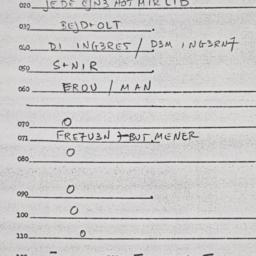 020 JEDE EJN3 HOT MIR LIB
030 BEJD+OLT
040 DI ING3RE5 / D3M ING3RN7
050 S+NIR
060 EROU / MAN
070 O
071 FRE7U3N 7BUT.MENER
080 O
090 O
100 O
110 O